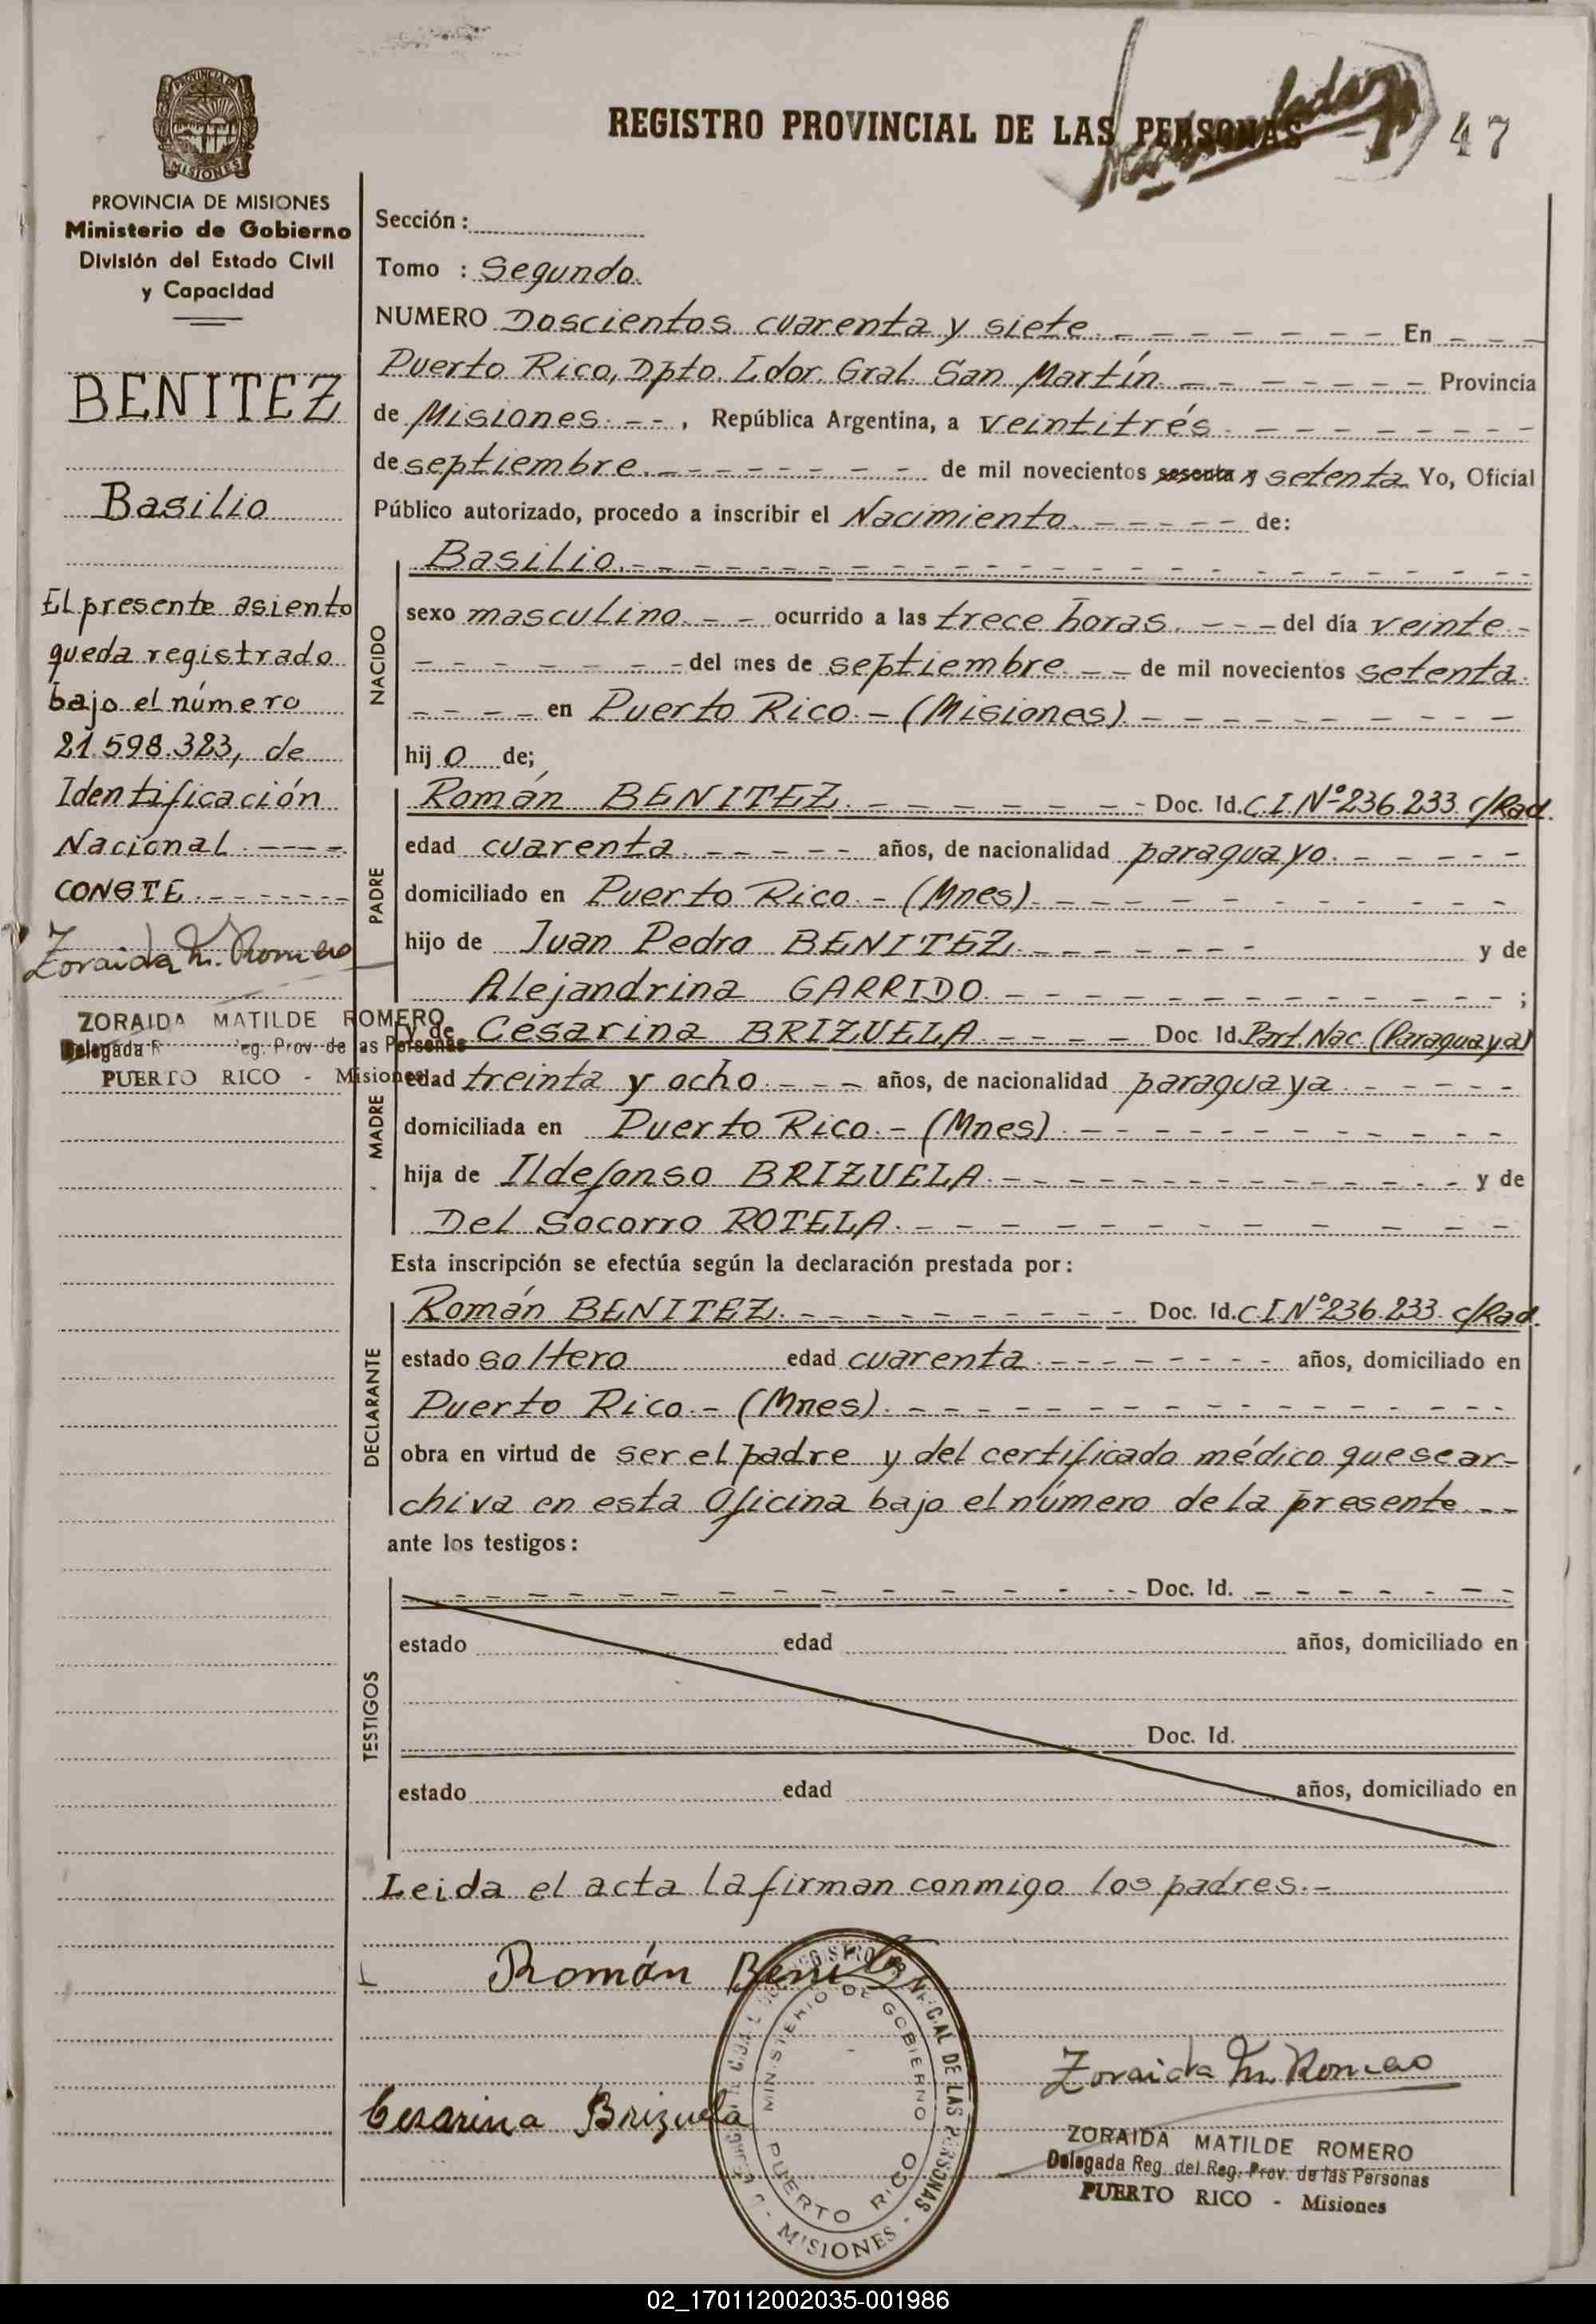 REGISTRO PROVINCIAL DE LAS PERSONAS
47
PROVINCIA DE MISIONES
Ministerio de Gobierno
División del Estado Civil
y Capacidad
BENITEZ
Basilio
El presente asiento
queda registrado
bajo el número
21.598.323, de
Identificación
Nacional.----
CONSTE.-------
Zoraida M. Romero
ZORAIDA MATILDE ROMERO
Delegada R eg. Prov de las Personas
PUERTO RICO - Misiones
Sección:
Tomo : Segundo.
NUMERO Doscientos cuarenta y siete.------- En ---
Puerto Rico, Dpto. Ldor. Gral. San Martín.------ Provincia
de Misiones.--, República Argentina, a veintitrés.--------
de septiembre.-------- de mil novecientos sesenta y setenta Yo, Oficial
Público autorizado, procedo a inscribir el Nacimiento.----- de:
NACIDO
Basilio.--------------------
sexo masculino.-- ocurrido a las trece horas.--- del día veinte.-
------- del mes de septiembre.-- de mil novecientos setenta.
---- en Puerto Rico.-(Misiones).---------
hijo de;
PADRE
Román BENITEZ.------- Doc. Id. C.I.Nº236.233. c/Rad.
edad cuarenta.----- años, de nacionalidad paraguayo.-----
domiciliado en Puerto Rico.-(Mnes).-----------
hijo de Juan Pedro BENITEZ.------ y de
Alejandrina GARRIDO.------------;
MADRE
y de Cesarina BRIZUELA.---- Doc. Id. Part. Nac. (Paraguaya)
edad treinta y ocho.--- años, de nacionalidad paraguaya.-----
domiciliada en Puerto Rico.-(Mnes).-----------
hija de Ildefonso BRIZUELA.------------- y de
Del Socorro ROTELA.-----------
Esta inscripción se efectúa según la declaración prestada por:
DECLARANTE
Román BENITEZ.---------- Doc. Id. C.I.Nº236.233. c/Rad.
estado soltero edad cuarenta.-------- años, domiciliado en
Puerto Rico.-(Mnes).----------------
obra en virtud de ser el padre y del certificado médico que se ar-
chiva en esta Oficina bajo el número de la presente.--
ante los testigos:
TESTIGOS
------------ Doc. Id. -------
estado edad años, domiciliado en
Doc. Id.
estado edad años, domiciliado en
Leida el acta la firman conmigo los padres.-
Román Benitez
Cesarina Brizuela
REGISTRO PROVINCIAL DE LAS PERSONAS
MINISTERIO DE GOBIERNO
PUERTO RICO
- MISIONES -
Zoraida M. Romero
ZORAIDA MATILDE ROMERO
Delegada Reg. del Reg. Prov. de las Personas
PUERTO RICO - Misiones
02_170112002035-001986